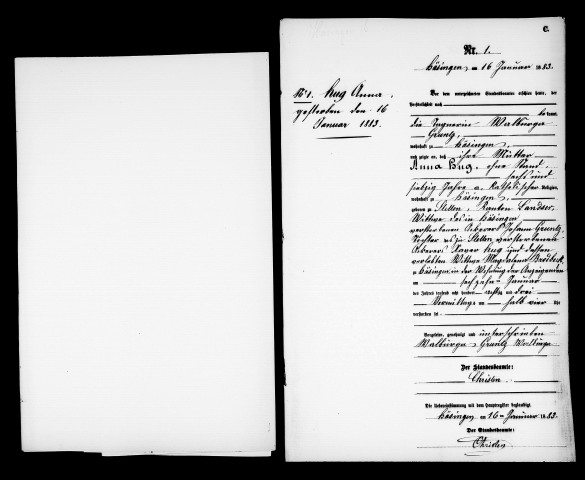 C.
Nr. 1.
Häsingen, am 16 Januar 1883.
Nº 1. Hug Anna,
gestorben den 16
Januar 1883.
Vor dem unterzeichneten Standesbeamten erschien heute, der
Persönlichkeit nach
bekannt,
die Walburga
Gruntz,
wohnhaft zu Häsingen,
und zeigte an, daß ihre Mutter
Anna Hug, ohne Stand,
sechs und
siebzig Jahre a, Katholischer Religion,
wohnhaft zu Häsingen,
geboren zu Stetten, Kanton Landser,
Wittwe des in Häsingen
verstorbenen Johann Gruntz,
Tochter des zu Stetten verstorbenen
Xaver Hug und dessen
Wittwe Magdalena
zu Häsingen, in der Wohnung der Anzeigenden
am sechszehn Januar
des Jahres tausend acht hundert achtzig und drei
Vormittags um halb vier Uhr
verstorben sei.
Vorgelesen, genehmigt und unterschrieben
Walburga Gruntz Walburga
Der Standesbeamte:
Christen
Die Uebereinstimmung mit dem Hauptregister beglaubigt.
Häsingen, am 16 Januar 1883.
Der Standesbeamte:
Christen